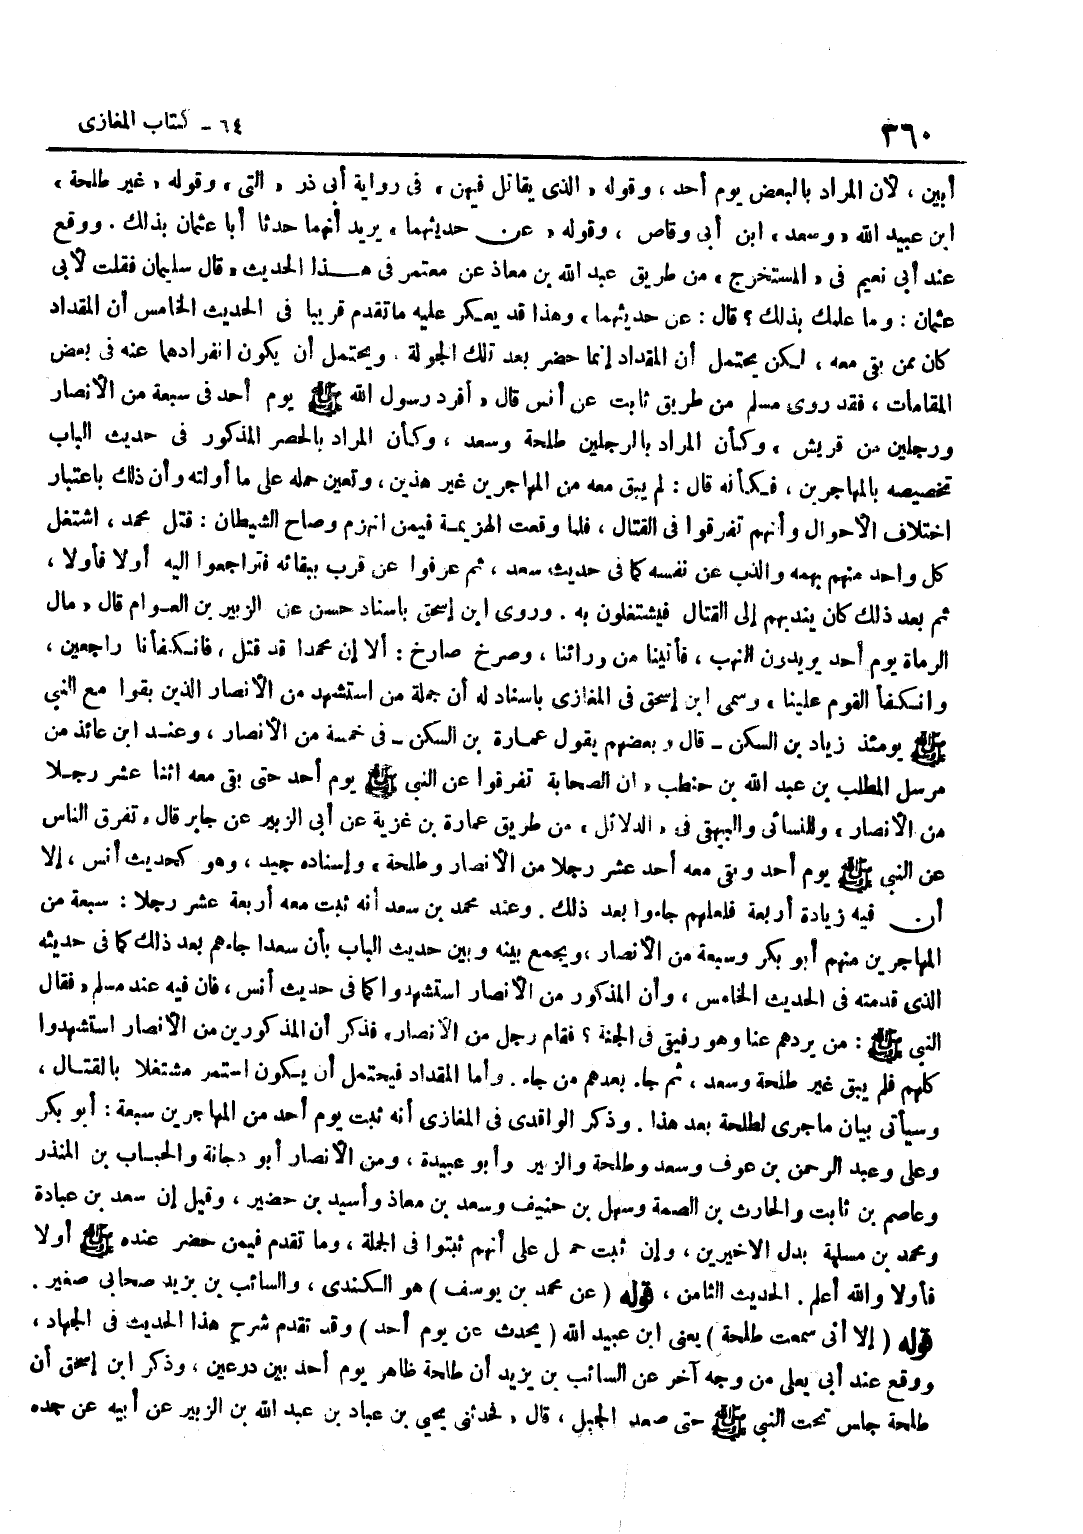 ٣٦٠
٦٤ - كتاب المغازى
أبين ، لأن المراد بالبعض يوم أحد ، وقوله « الذى يقاتل فيهن » فى رواية أبى ذر « التى » وقوله « غير طلحة »
ابن عبيد الله « وسعد » ابن أبى وقاص ، وقوله « عن حديثهما » يريد أنهما حدثا أبا عثمان بذلك . ووقع
عند أبى نعيم فى « المستخرج » من طريق عبد الله بن معاذ عن معتمر فى هذا الحديث « قال سليمان فقلت لأبى
عثمان : وما علمك بذلك ؟ قال : عن حديثهما » وهذا قد يعكر عليه ماتقدم قريبا فى الحديث الخامس أن المقداد
كان ممن بقى معه ، لكن يحتمل أن المقداد إنما حضر بعد تلك الجولة . ويحتمل أن يكون انفرادهما عنه فى بعض
المقامات ، فقد روى مسلم من طريق ثابت عن أنس قال « أفرد رسول الله ﷺ يوم أحد فى سبعة من الأنصار
ورجلين من قريش » وكأن المراد بالرجلين طلحة وسعد ، وكأن المراد بالحصر المذكور فى حديث الباب
تخصيصه بالمهاجرين ، فكأنه قال : لم يبق معه من المهاجرين غير هذين ، وتعين حمله على ما أولته وأن ذلك باعتبار
اختلاف الأحوال وأنهم تفرقوا فى القتال ، فلما وقعت الهزيمة فيمن انهزم وصاح الشيطان : قتل محمد ، اشتغل
كل واحد منهم بهمه والذب عن نفسه كما فى حديث سعد ، ثم عرفوا عن قرب ببقائه فتراجعوا اليه أولا فأولا ،
ثم بعد ذلك كان يندبهم إلى القتال فيشتغلون به . وروى ابن إسحق باسناد حسن عن الزبير بن العوام قال « مال
الرماة يوم أحد يريدون النهب ، فأتينا من ورائنا ، وصرخ صارخ : ألا إن محمدا قد قتل ، فانكفأنا راجعين ،
وانكفأ القوم علينا » وسمى ابن إسحق فى المغازى باسناد له أن جملة من استشهد من الأنصار الذين بقوا مع النبي
ﷺ يومئذ زياد بن السكن - قال « وبعضهم يقول عمارة بن السكن - فى خمسة من الأنصار ، وعند ابن عائذ من
مرسل المطلب بن عبد الله بن حنطب « ان الصحابة تفرقوا عن النبي ﷺ يوم أحد حتى بقى معه اثنا عشر رجلا
من الأنصار » وللنسائى والبيهقى فى « الدلائل » من طريق عمارة بن غزية عن أبى الزبير عن جابر قال « تفرق الناس
عن النبي ﷺ يوم أحد وبقى معه أحد عشر رجلا من الأنصار وطلحة » وإسناده جيد ، وهو كحديث أنس ، إلا
أن فيه زيادة أربعة فلعلهم جاءوا بعد ذلك . وعند محمد بن سعد أنه ثبت معه أربعة عشر رجلا : سبعة من
المهاجرين منهم أبو بكر وسبعة من الأنصار ، ويجمع بينه وبين حديث الباب بأن سعدا جاءهم بعد ذلك كما فى حديثه
الذى قدمته فى الحديث الخامس ، وأن المذكور من الأنصار استشهدوا كما فى حديث أنس ، فان فيه عند مسلم « فقال
النبي ﷺ : من يردهم عنا وهو رفيقى فى الجنة ؟ فقام رجل من الأنصار » فذكر أن المذكورين من الأنصار استشهدوا
كلهم فلم يبق غير طلحة وسعد ، ثم جاء بعدهم من جاء . وأما المقداد فيحتمل أن يكون استمر مشتغلا بالقتال ،
وسيأتى بيان ماجرى لطلحة بعد هذا . وذكر الواقدى فى المغازى أنه ثبت يوم أحد من المهاجرين سبعة : أبو بكر
وعلى وعبد الرحمن بن عوف وسعد وطلحة والزبير وأبو عبيدة ، ومن الأنصار أبو دجانة والحباب بن المنذر
وعاصم بن ثابت والحارث بن الصمة وسهل بن حنيف وسعد بن معاذ وأسيد بن حضير ، وقيل إن سعد بن عبادة
ومحمد بن مسلمة بدل الاخيرين ، وإن ثبت حمل على أنهم ثبتوا فى الجملة ، وما تقدم فيمن حضر عنده ﷺ أولا
فأولا والله أعلم . الحديث الثامن ، قوله ( عن محمد بن يوسف ) هو الكندى ، والسائب بن يزيد صحابى صغير .
قوله ( إلا أنى سمعت طلحة ) يعنى ابن عبيد الله ( يحدث عن يوم أحد ) وقد تقدم شرح هذا الحديث فى الجهاد ،
ووقع عند أبى يعلى من وجه آخر عن السائب بن يزيد أن طلحة ظاهر يوم أحد بين درعين ، وذكر ابن إسحق أن
طلحة جلس تحت النبي ﷺ حتى صعد الجبل ، قال « فحدثنى يحيى بن عباد بن عبد الله بن الزبير عن أبيه عن جده